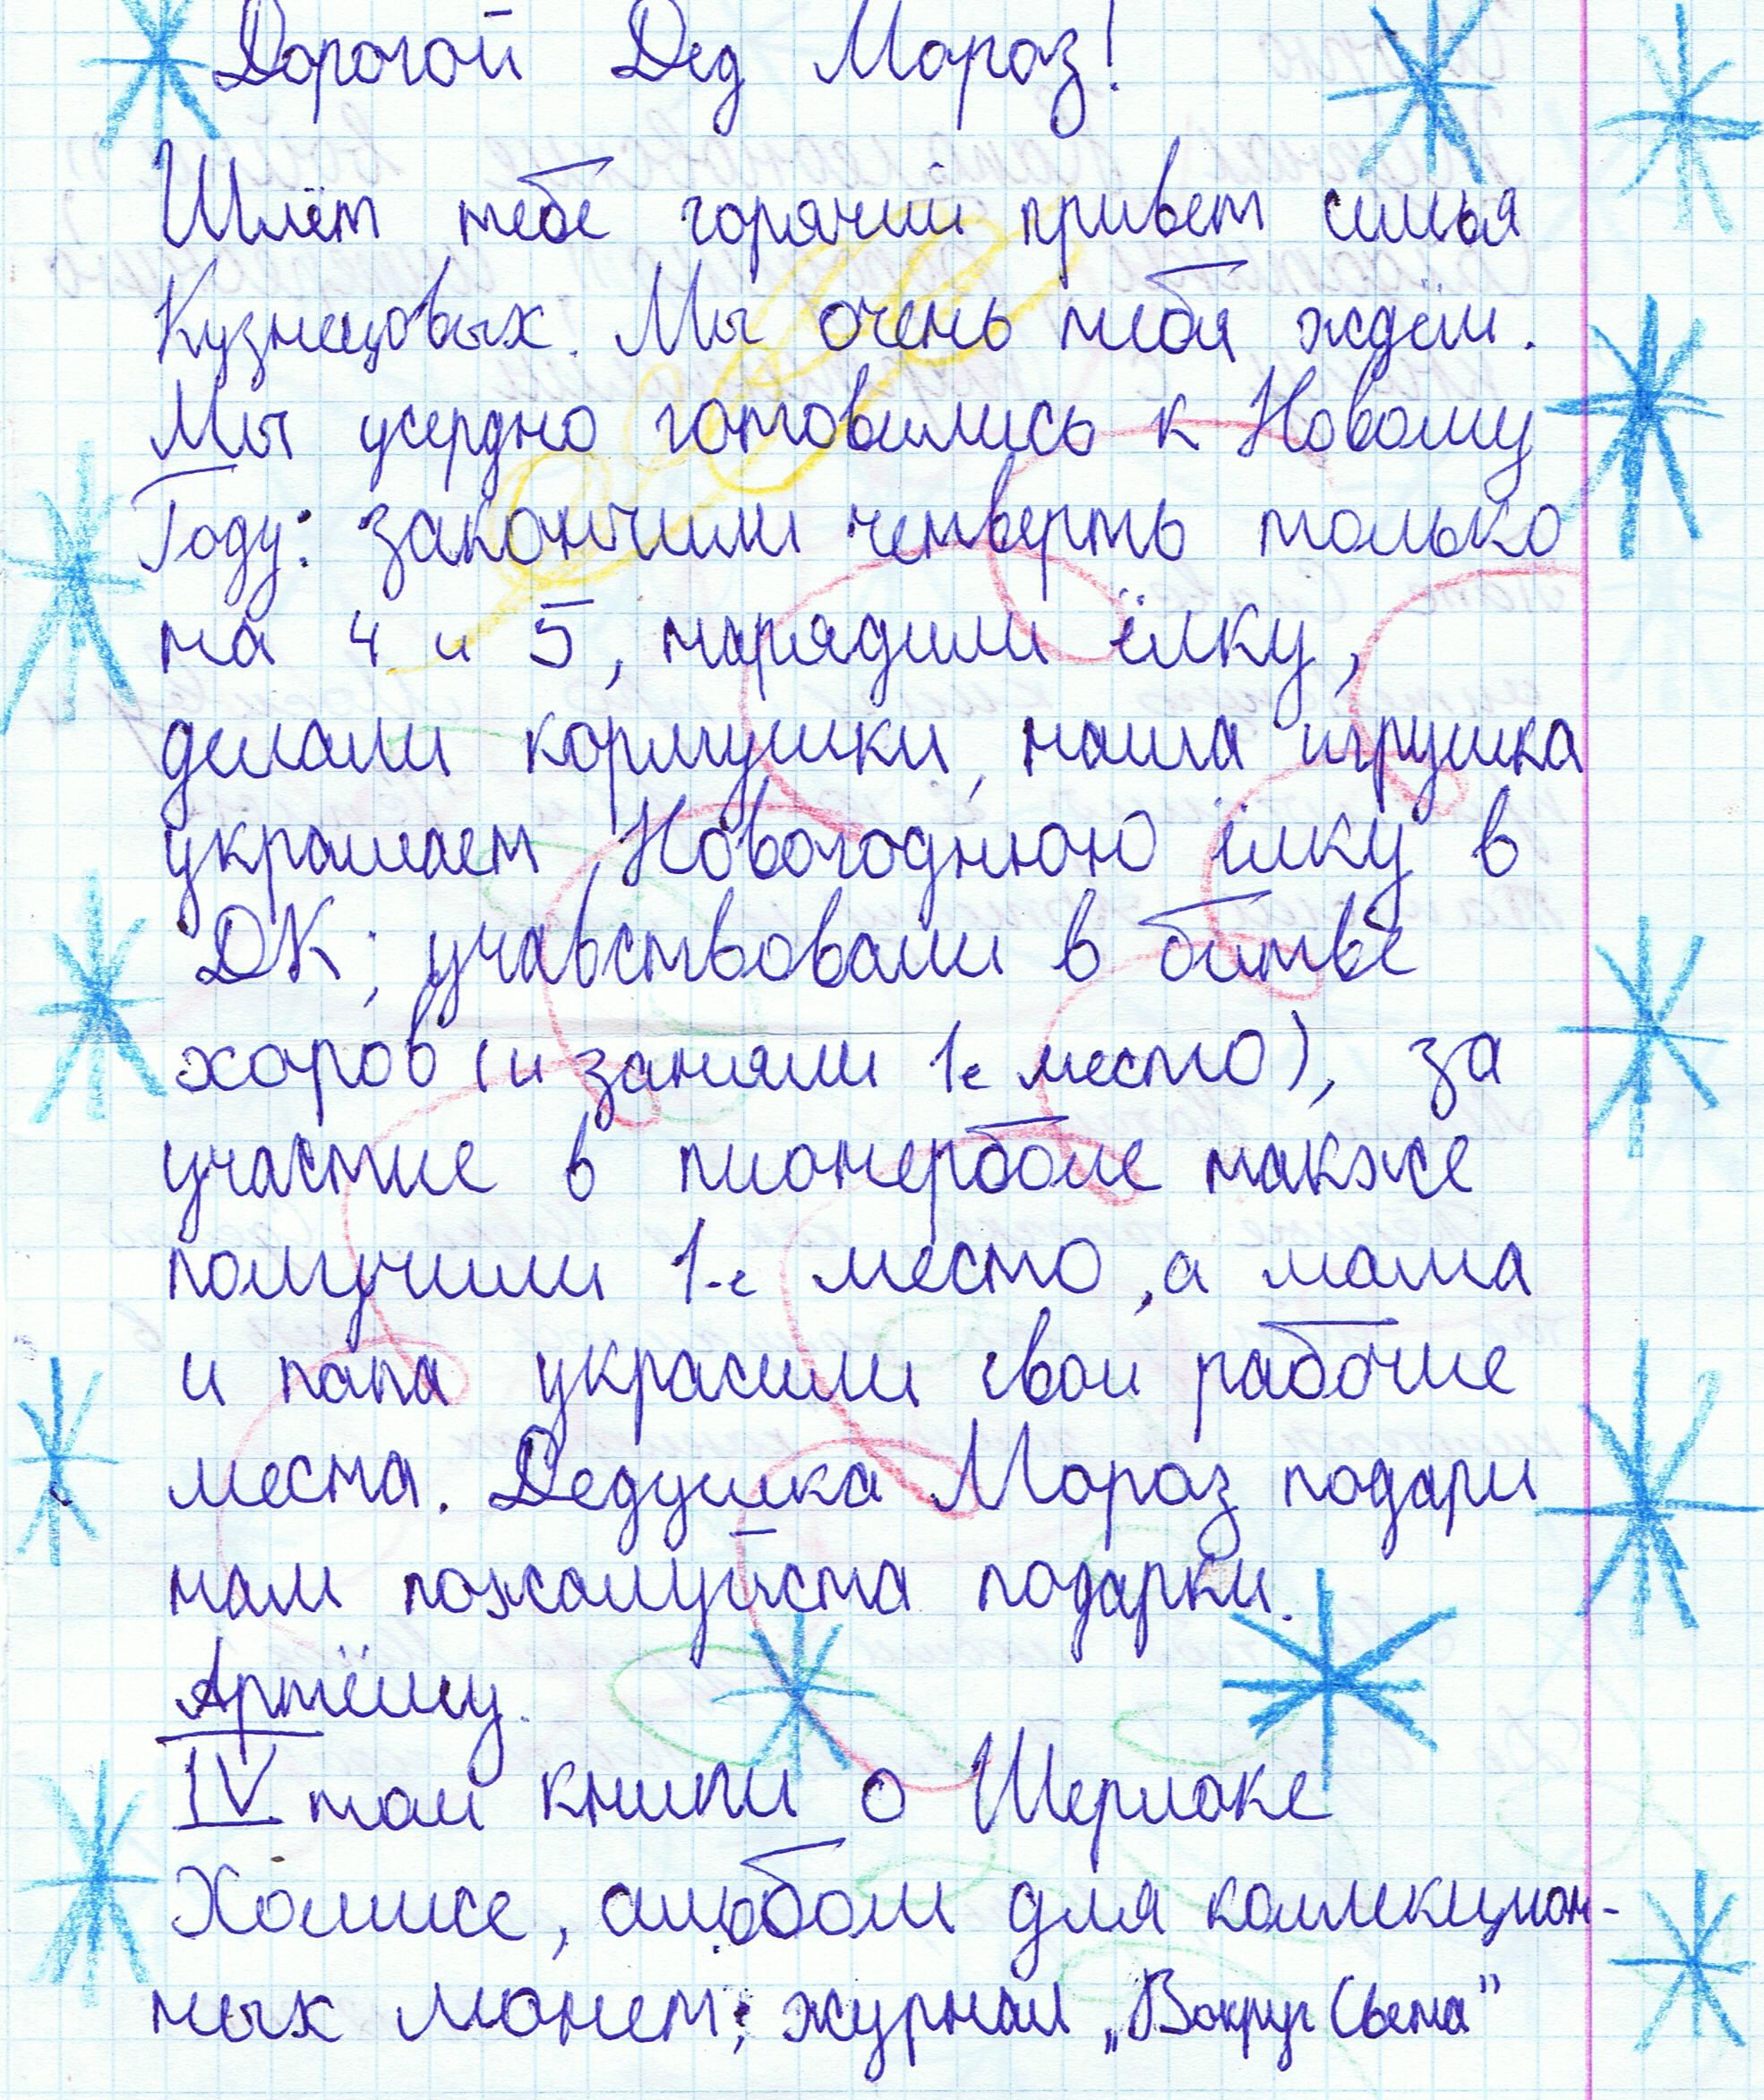 Дорогой Дед Мороз!
Шлёт тебе горячий привет семья
Кузнецовых. Мы очень тебя ждём.
Мы усердно готовились к Новому
Году: закончили четверть только
на 4 и 5, нарядили ёлку,
делали кормушки, наша игрушка
украшает Новогоднюю ёлку в
ДК; учавствовали в битве
хоров (и заняли 1е место), за
участие в пионерболе также
получили 1-е место, а мама
и папа украсили свои рабочие
места. Дедушка Мороз подари
нам пожалуйста подарки.
Артёму.
IV том книги о Шерлоке
Холмсе, альбом для коллекцион-
ных монет; журнал „Вокруг Света"